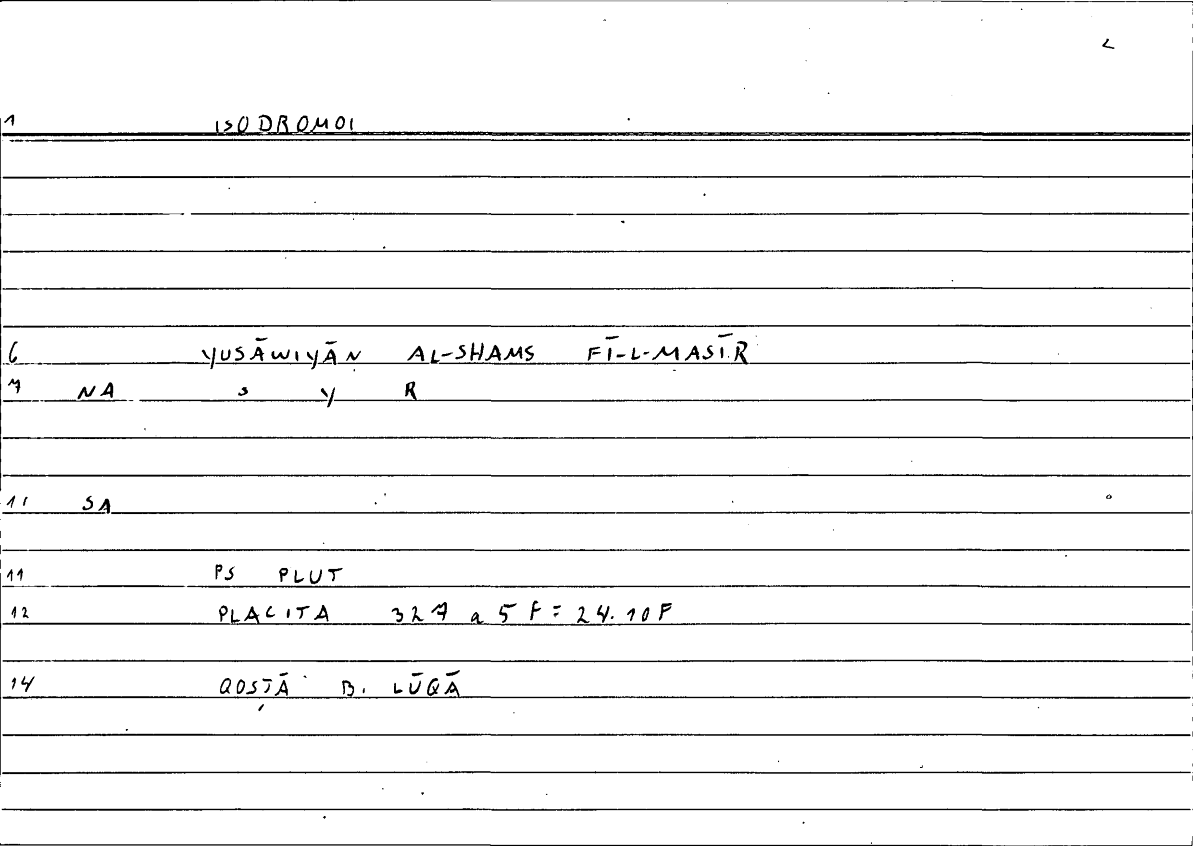 <
1 ISODROMOI
6 YUSĀWIYĀN AL-SHAMS FĪ-L-MASĪR
7 NA S Y R
11 SA
11 PS PLUT
12 PLACITA 327 a 5 F = 24.10F
14 QOSṬĀ B. LŪQĀ